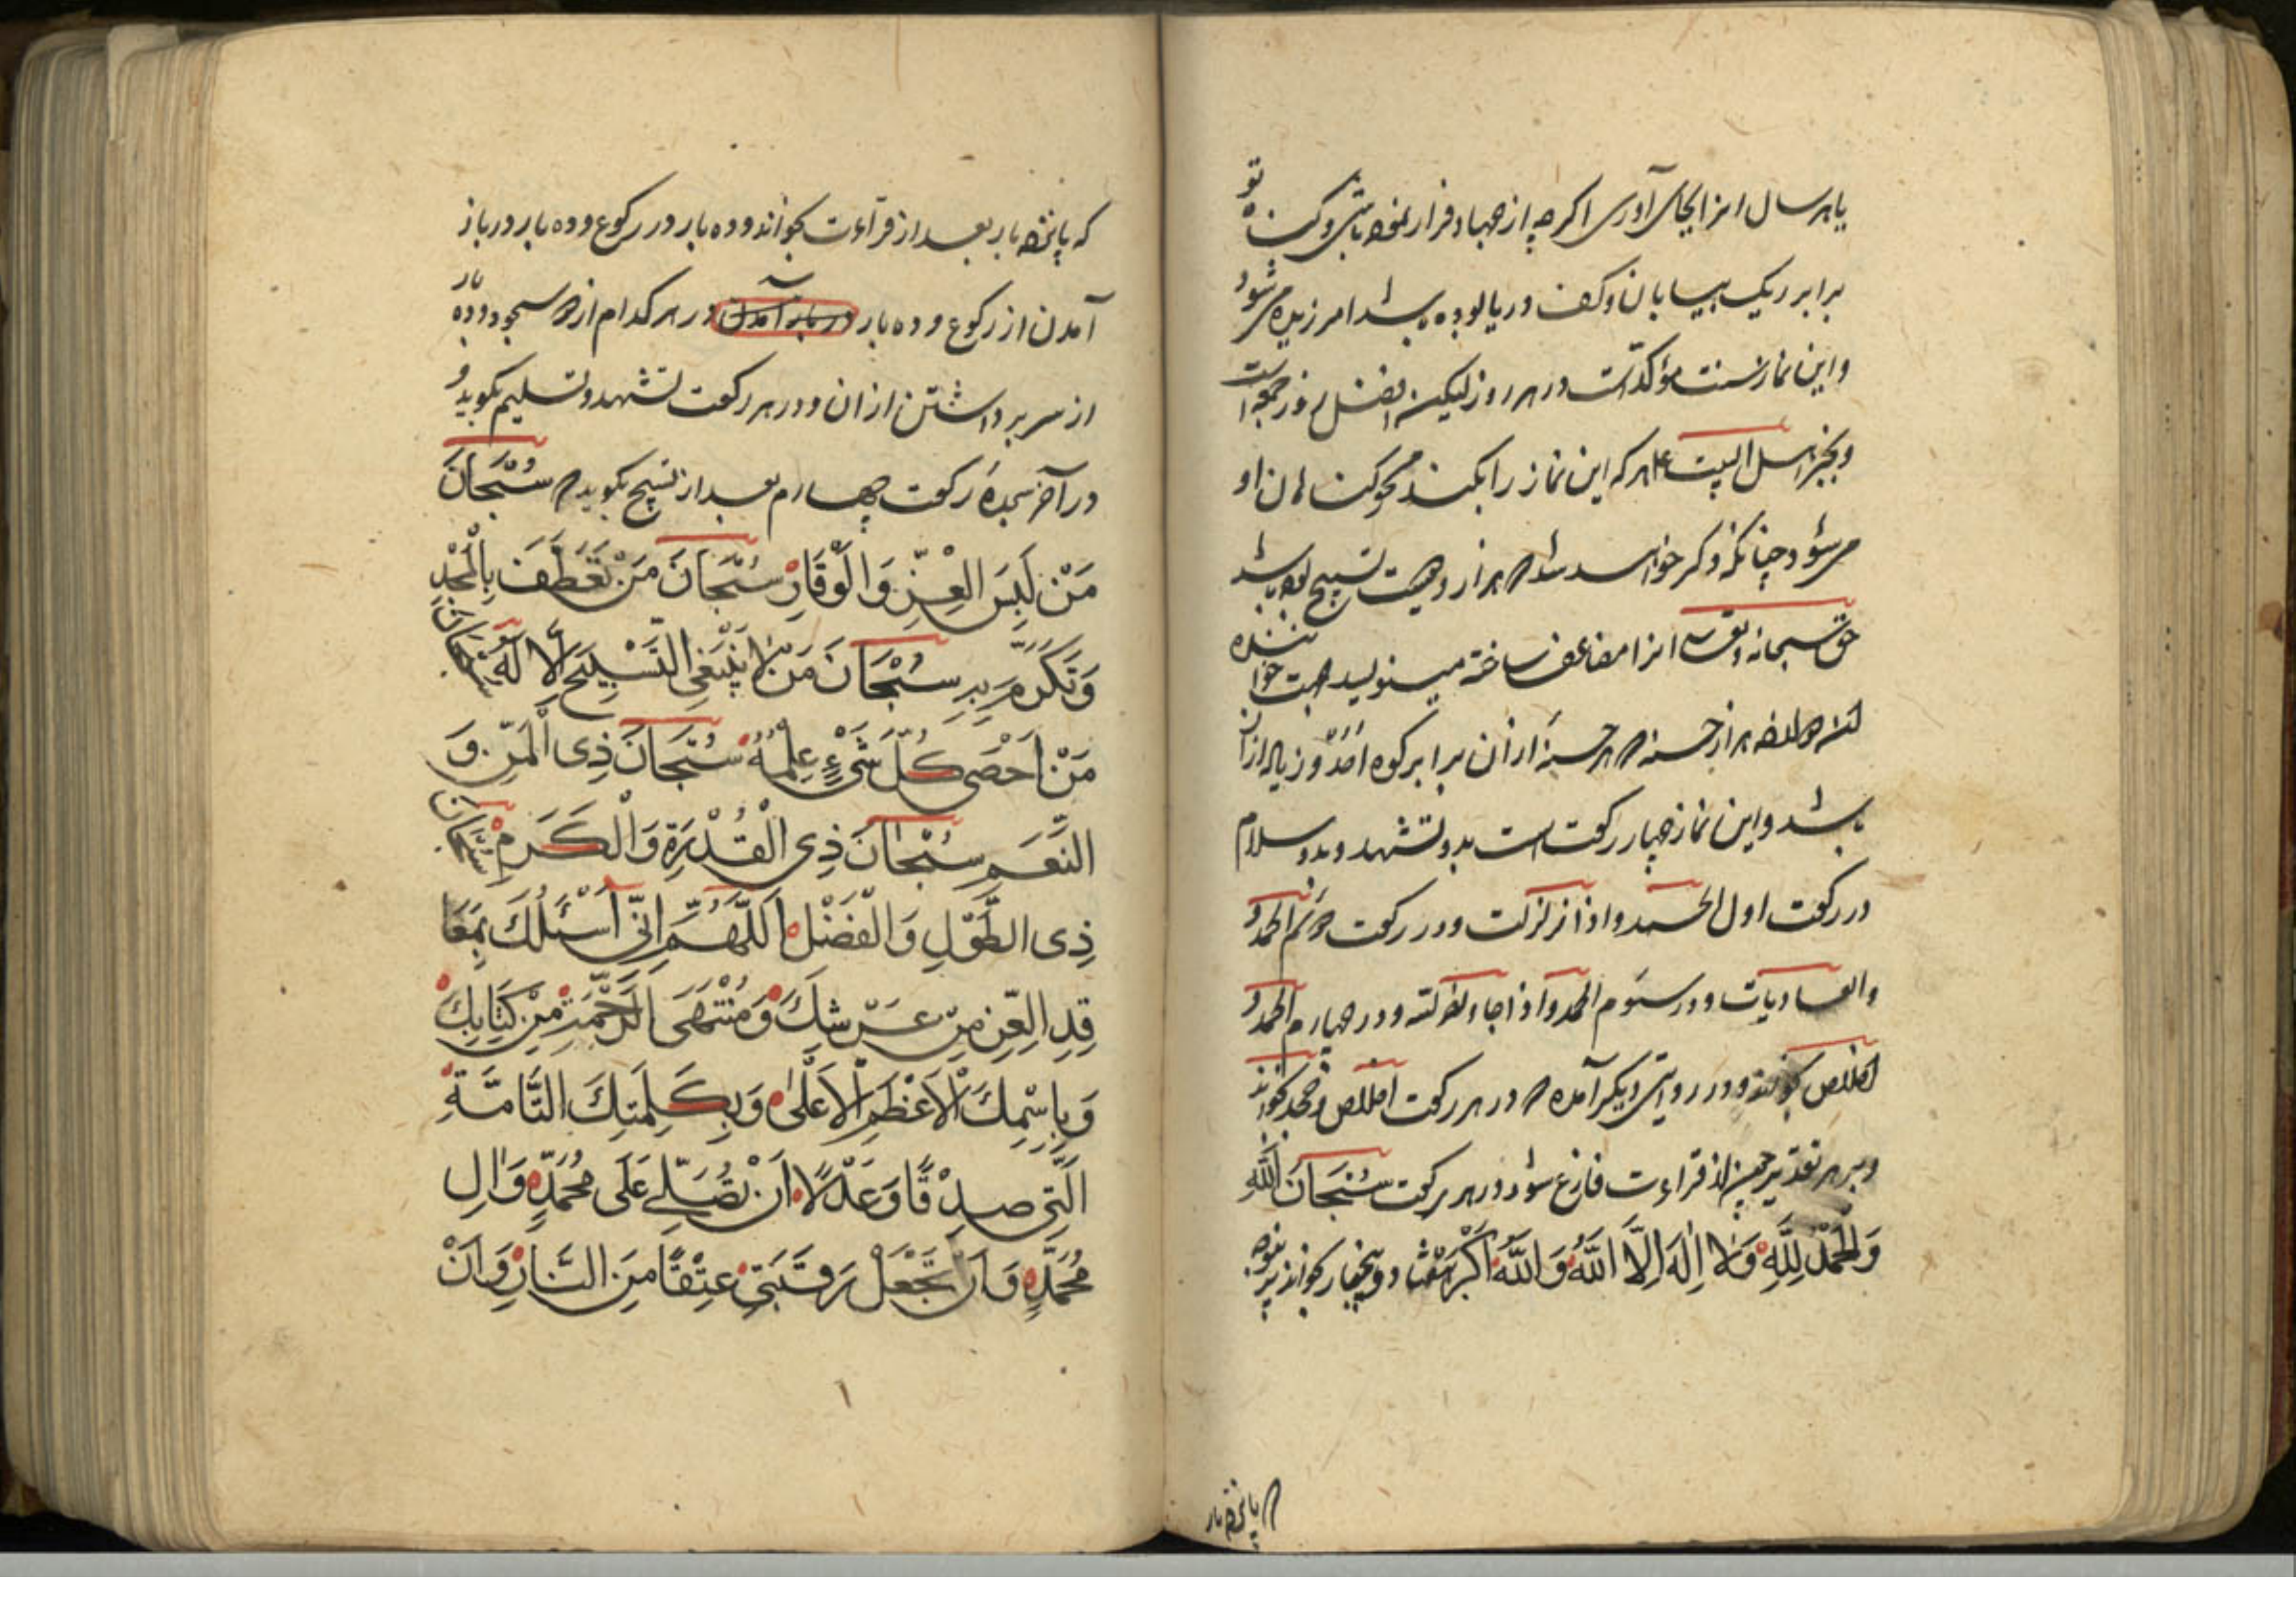 یا هر سال انرا بجای آوری اکرچه از جهاد فرار نموده باشی و کناه تو
برابر ریک بیابان و کف دریا بوده باشد امرزیده می شود
و این نماز سنت مؤکد است در هر روز لیکن افضل روز جمعه است
و بخبر اهل البیت ع هر که این نماز را بکند محو کناهان او
می شود چنانکه ذکر خواهد شد هزار و دویست تسبیح بوده باشد
حق سبحانه و تعالی انرا مضاعف ساخته مینویسد جهت خواننده
هزار حسنه که هر حسنهٔ از آن برابر کوه احد و زیاده از آن
باشد و این نماز چهار رکعت است بدو تشهد و بدو سلام
در رکعت اول الحمد و اذا زلزلت و در رکعت دویم الحمد و
والعادیات و در سیوم الحمد و اذا جاء نصر الله و در چهارم الحمد و
اخلاص بخواند و در روایتی دیکر آمده که در هر رکعت اخلاص و جحد بخواند
و بر هر تقدیر چون از قراءت فارغ شود در هر رکعت سُبْحَانَ اللّٰهِ
وَالْحَمْدُ لِلّٰهِ وَلَا اِلٰهَ اِلَّا اللّٰهُ وَاللّٰهُ اَکْبَرُ
که پانزده بار
که پانزده بار بعد از قرآءت بخواند و ده بار در رکوع و ده بار در باز
آمدن از رکوع و ده بار در باز آمدن در هر کدام از دو سجود و ده بار
از سر برداشتن از ان و در هر رکعت تشهد و تسلیم بکوید و
در آخر سجدهٔ رکعت چهارم بعد از تسبیح بکوید که سُبْحَانَ
مَنْ لَبِسَ الْعِزَّ وَالْوَقَارَ سُبْحَانَ مَنْ تَعَطَّفَ بِالْمَجْدِ
وَتَکَرَّمَ بِهِ سُبْحَانَ مَنْ لَا یَنْبَغِی التَّسْبِیحُ اِلَّا لَهُ سُبْحَانَ
مَنْ اَحْصٰی کُلَّ شَیْءٍ عِلْمُهُ سُبْحَانَ ذِی الْمَنِّ وَ
النِّعَمِ سُبْحَانَ ذِی الْقُدْرَةِ وَالْکَرَمِ سُبْحَانَ
ذِی الطَّوْلِ وَالْفَضْلِ اَللّٰهُمَّ اِنِّی اَسْئَلُكَ بِمَعَا
قِدِ الْعِزِّ مِنْ عَرْشِكَ وَمُنْتَهَی الرَّحْمَةِ مِنْ کِتَابِكَ
وَبِاسْمِكَ الْاَعْظَمِ الْاَعْلٰی وَبِکَلِمَتِكَ التَّامَّةِ
الَّتِی صِدْقًا وَعَدْلًا اَنْ تُصَلِّیَ عَلٰی مُحَمَّدٍ وَاٰلِ
مُحَمَّدٍ وَاَنْ تَجْعَلَ رَقَبَتِی عِتْقًا مِنَ النَّارِ وَاَنْ